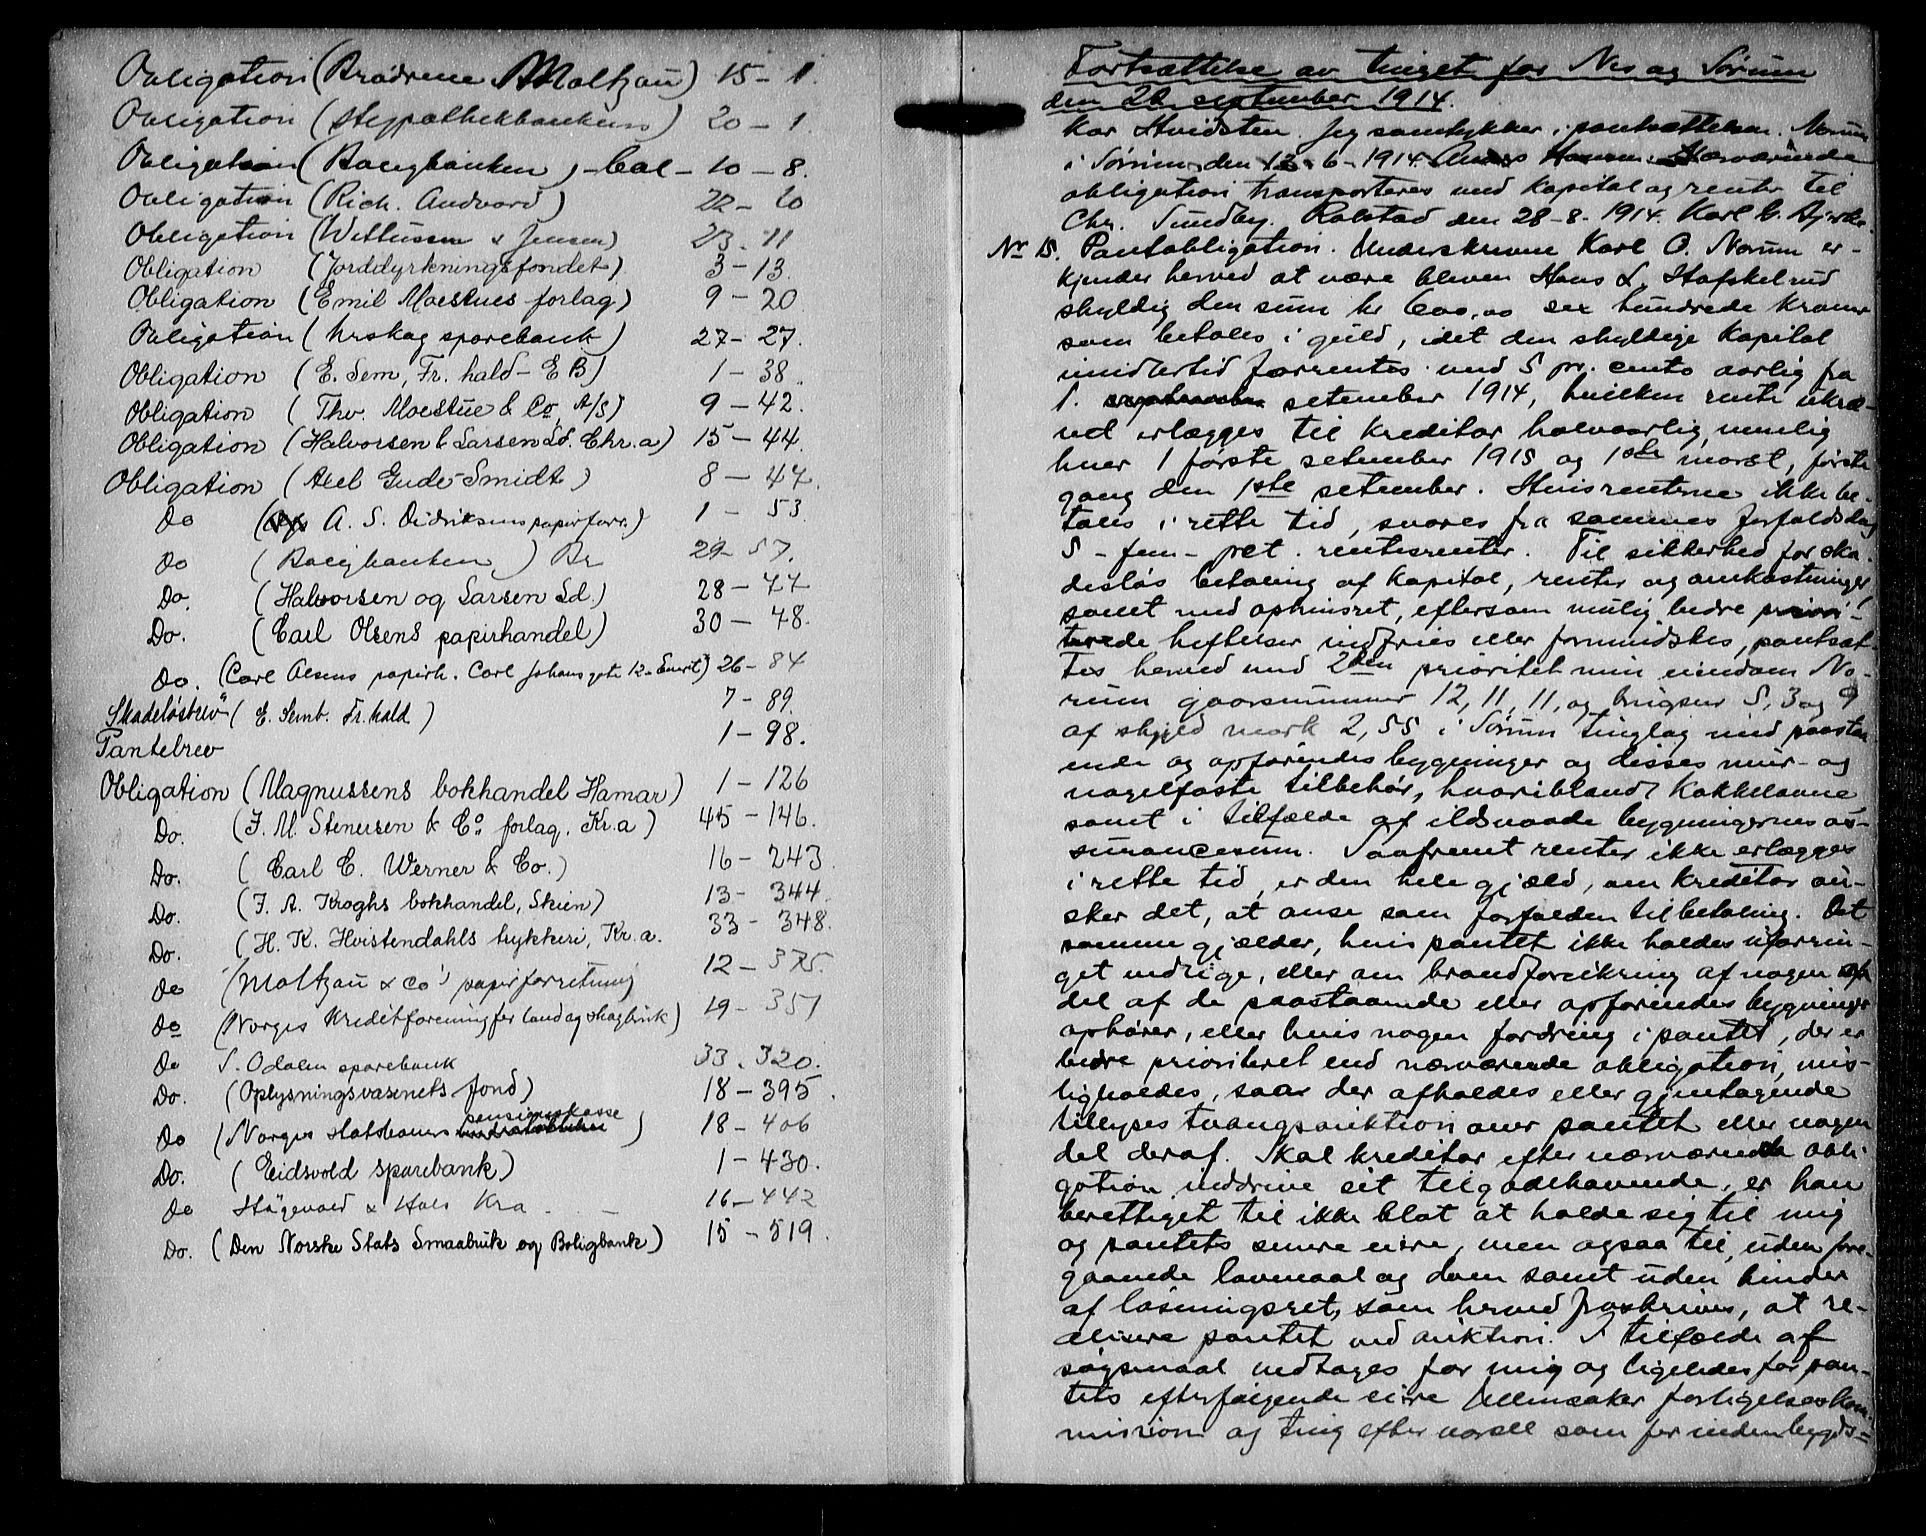 Obligation (Brødrene Moltzau) 15 - 1
Obligation (Hypothekbankens) 20 - 1
Obligation (Boligbanken) - Cal - 10 - 8.
Obligation (Rich. Andvord) 22 - 10
Obligation (Wittussen & Jensen) 23 - 11
Obligation (Jorddyrkningsfondet) 3 - 13.
Obligation (Emil Moestues forlag) 9 - 20
Obligation (Urskog sparebank) 27 - 27.
Obligation (E. Sem, Fr. hald - E B) 1 - 38
Obligation (Thv. Moestue & Co, A/S) 9 - 42.
Obligation (Halvorsen & Larsen Ld. Chr.a) 15 - 44.
Obligation (Axel Gude-Smidt) 8 - 47.
Do (A. S. Didriksens papirforr.) 1 - 53
Do (Boligbanken) Br 29 - 57.
Do. (Halvorsen og Larsen Ld.) 28 - 77
Do. (Carl Olsens papirhandel) 30 - 78.
Do. (Carl Olsens papirh. Carl Johans gate 12 - Enert) 26 - 84
Skadesløsbrev (E. Semb. Fr.hald) 7 - 89.
Pantebrev 1 - 98.
Obligation (Magnussens bokhandel Hamar) 1 - 126
Do. (J. M. Stenersen & Co forlag, Kr.a) 45 - 146.
Do. (Carl C. Werner & Co.) 16 - 243.
Do. (J. A. Kroghs bokhandel, Skien) 13 - 344
Do. (H. K. Hvistendahls trykkeri, Kr.a. 33 - 348.
do (Moltzau & Co' papirforretning 12 - 375.
do (Norges Kreditforening for land og skogbruk) 19 - 351
do S. Odalen sparebank 33 . 320.
Do. (Oplysningsvæsenets fond) 18 - 395.
pensionskasse
Do (Norges Statsbaners) 18 - 406
Do. (Eidsvold sparebank) 1 - 430.
do Høgevold & Hals Kra. 16 - 442
Do. (Den Norske Stats Smaabruk og Boligbank) 15 - 519.
Fortsættelse av tinget for Nes og Sørum
den 22 september 1914.
Kar Hvidsten. Jeg samtykker i pantsættelsen. Norum
i Sørum den 12-6-1914 Anders Hansen. Nærværende
obligation transporteres med kapital og renter til
Chr. Sundby. Rolstad den 28-8-1914. Karl
Nr 15. Pantobligation. Underskrevne Karl O. Norum er-
kjender herved at være bleven Hans L. Hafskelrud
skyldig den sum kr 600,00 sex hundrede kroner
som betales i guld, idet den skyldige kapital
imidlertid forrentes med 5 pr. cento aarlig fra
1. setember 1914, hvilken rente ukræ-
ved erlægges til kreditor halvaarlig, nemlig
hver 1 første setember 1915 og 1ste marst, første
gang den 1ste setember. Hvis renterne ikke be-
tales i rette tid, svares fra sammes forfaldsdag
5 - fem - pct. rentesrenter. Til sikkerhed for ska-
desløs betaling af kapital, renter og omkostninger
samt med opkrisret, eftersom mulig bedre priori-
terede heftelser indfries eller formindskes, pantsæt-
tes herved med 2den prioritet min eiendom No-
rum gaardsnummer 12, 11, 11, og brugsnr 5, 3 og 9
af skyld mark 2,55 i Sørum tinglag med paastaa-
ende og opførendes bygninger og disses mur- og
nagelfaste tilbehør, hvoriblandt kakkelovne,
samt i tilfælde af ildsvaade bygningernes as-
surancesum. Saafremt renter ikke erlægges
i rette tid, er den hele gjæld, om kreditor øn-
sker det, at anse som forfalden til betaling. Det
samme gjælder, hvis pantet ikke holdes uforrin-
get vedlige, eller om brandforsikring af nogen
del af de paastaaende eller opførendes bygninger
ophører, eller hvis nogen fordring i pantet, der er
bedre prioriteret end nærværende obligation, mis-
ligholdes, saar der afholdes eller gjentagende
tillyses tvangsauktion over pantet eller nogen
del deraf. Skal kreditor efter nærværende obli-
gation inddrive sit tilgodehavende, er han
berettiget til ikke blot at holde sig til mig
og pantets senere eiere, men ogsaa til, uden fore-
gaaende lovmaal og dom samt uden hinder
af løsningsret, som herved fraskrives, at re-
alisere pantet ved auktion. I tilfælde af
søgsmaal vedtages for mig og ligeledes for pan-
tets efterfølgende eiere Ullensaker forligelseskom-
mission og ting efter varsel som for indenbygds-